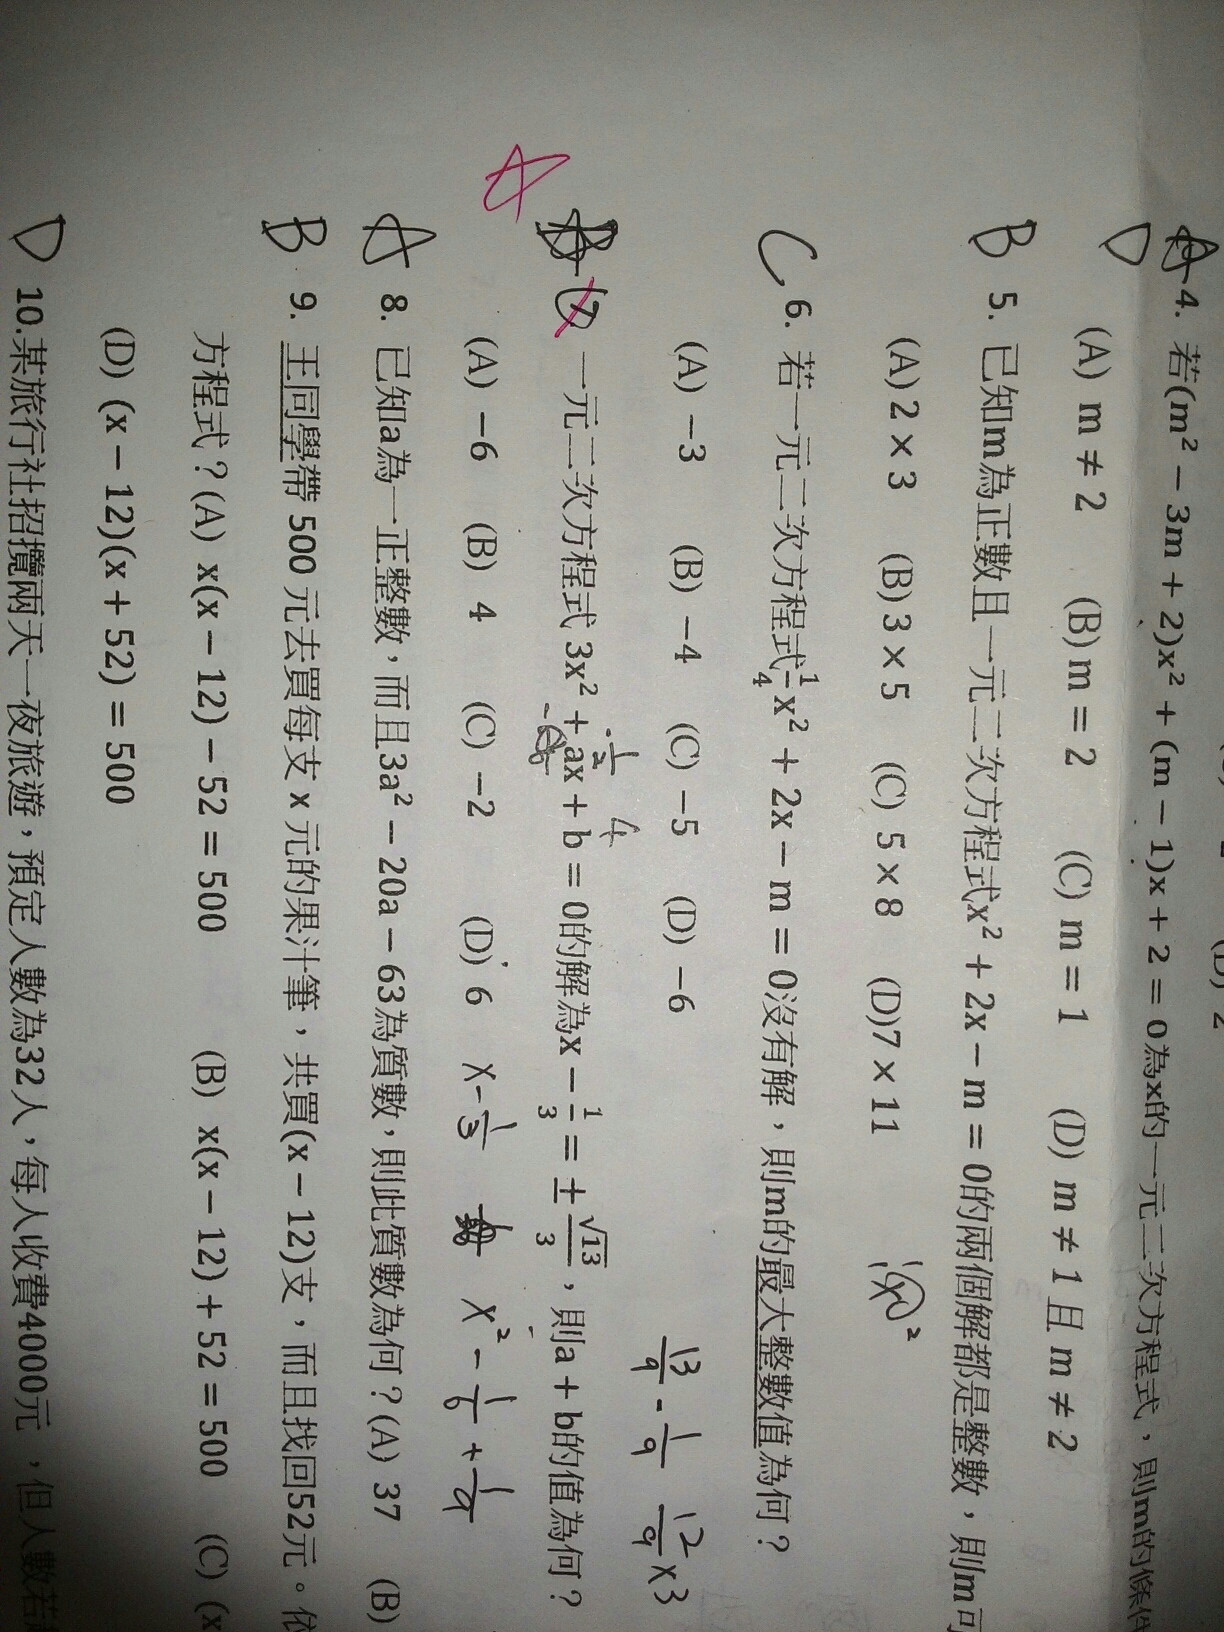 4. 若(m² − 3m + 2)x² + (m − 1)x + 2 = 0為x的一元二次方程式，則m的條件
D
(A) m ≠ 2 (B) m = 2 (C) m = 1 (D) m ≠ 1 且 m ≠ 2
B 5. 已知m為正數且一元二次方程式x² + 2x − m = 0的兩個解都是整數，則m可
(A) 2 × 3 (B) 3 × 5 (C) 5 × 8 (D) 7 × 11
C 6. 若一元二次方程式 1/4 x² + 2x − m = 0沒有解，則m的最大整數值為何？
(A) −3 (B) −4 (C) −5 (D) −6
13/9 - 1/9 12/9 x3
一元二次方程式 3x² + ax + b = 0的解為x − 1/3 = ± √13/3，則a + b的值為何？
A
(A) −6 (B) 4 (C) −2 (D) 6 x - 1/3 x² - 1/6 + 1/9
A 8. 已知a為一正整數，而且3a² − 20a − 63為質數，則此質數為何？(A) 37 (B)
B 9. 王同學帶 500 元去買每支 x 元的果汁筆，共買(x − 12)支，而且找回52元。依
方程式？(A) x(x − 12) − 52 = 500 (B) x(x − 12) + 52 = 500 (C) (x
(D) (x − 12)(x + 52) = 500
D 10.某旅行社招攬兩天一夜旅遊，預定人數為32人，每人收費4000元，但人數若